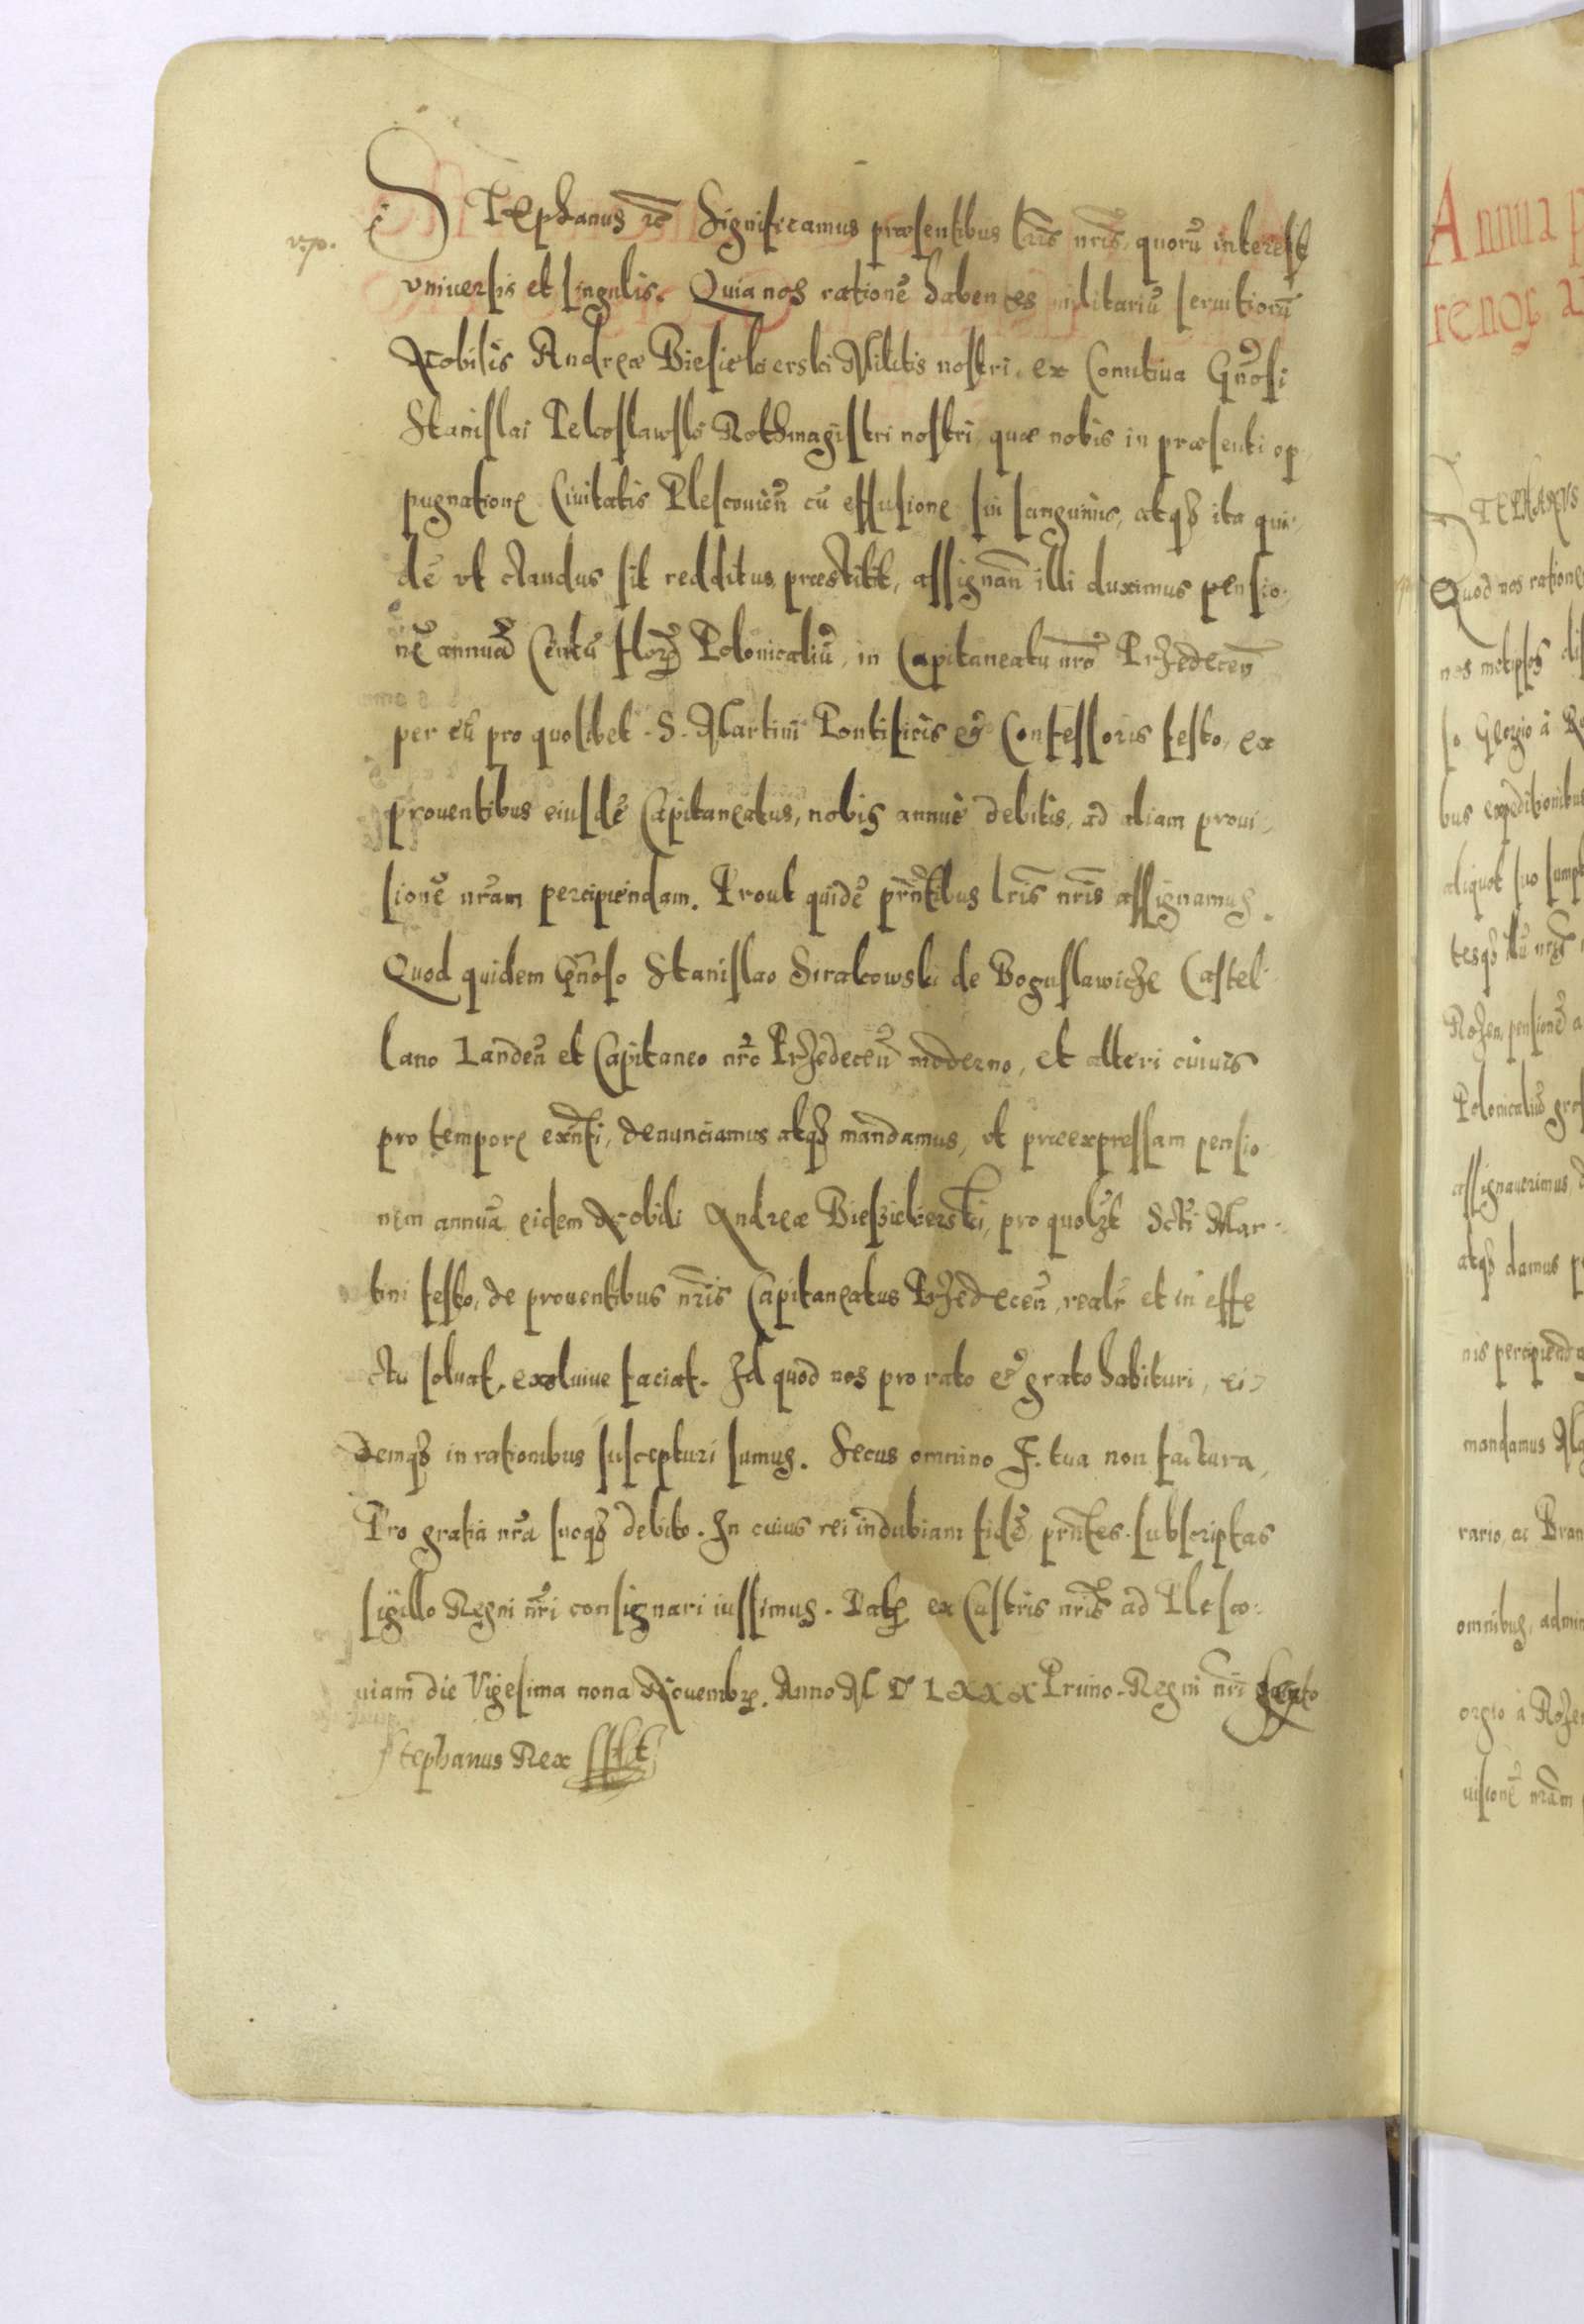 v.p.
Stephanus etc Significamus præsentibus lr̃is nr̃is, quorũ interest
vniuersis et singulis. Quia nos rationẽ habentes militariũ seruitiorũ
Nobilis Andreæ Biesiekierski Militis nostri, ex Comitiua Gñosi
Stanislai Pekoslawski Rothmagistri nostri, quæ nobis in præsenti op-
pugnatione Ciuitatis Plescouieñ cũ effusione sui sanguinis, atqȝ ita qui-
dẽ vt claudus sit redditus, præstitit, assignañ illi duximus pensio-
nẽ annuã Centũ flor. Polonicaliũ, in Capitaneatu nr̃o Przedeceñ
per eũ pro quolibet S. Martini Pontificis & Confessoris festo, ex
prouentibus eiusdẽ Capitaneatus, nobis annuè debitis, ad aliam proui-
sionẽ nr̃am percipiendam. Prout quidẽ pr̃ntibus lr̃is nr̃is assignamus.
Quod quidem Gñoso Stanislao Sirakowski de Boguslawicze Castel-
lano Landeñ et Capitaneo nr̃o Przedeceñ moderno, et alteri cuiuis
pro tempore exñti, denunciamus atqȝ mandamus, vt præexpressam pensio-
nem annuã eidem Nobili Andreæ Biesziekierski, pro quolȝt Scti Mar-
tini festo, de prouentibus nr̃is Capitaneatus Przedeceñ, realr̃ et in effe
ctu soluat, exoluiue faciat. Id quod nos pro rato & grato habituri, ei-
demqȝ in rationibus suscepturi sumus. Secus omnino F. tua non factura,
Pro gratia nr̃a sucqȝ debito. In cuius rei indubiam fidẽ, pr̃ntes subscriptas
sigillo Regni nr̃i consignari iussimus. Dat. ex Castris nr̃is ad Plesco-
uiam die Vigesima nona Nouembr. Anno M D LXXX Primo. Regni nr̃i Sexto
Stephanus Rex sst
Annua p
renos a
STEPHANUS
Quod nos ratione
nos metipsos
so Georgio à Ro
bus expeditionibus
aliquot suo sumpt
Rozen, pensionẽ a
Polonicaliũ gros
assignauerimus,
atqȝ damus p
nis percipienda
mandamus
rario, ac Bran
omnibus, admin
orgio à Rozen
uisionẽ nr̃am